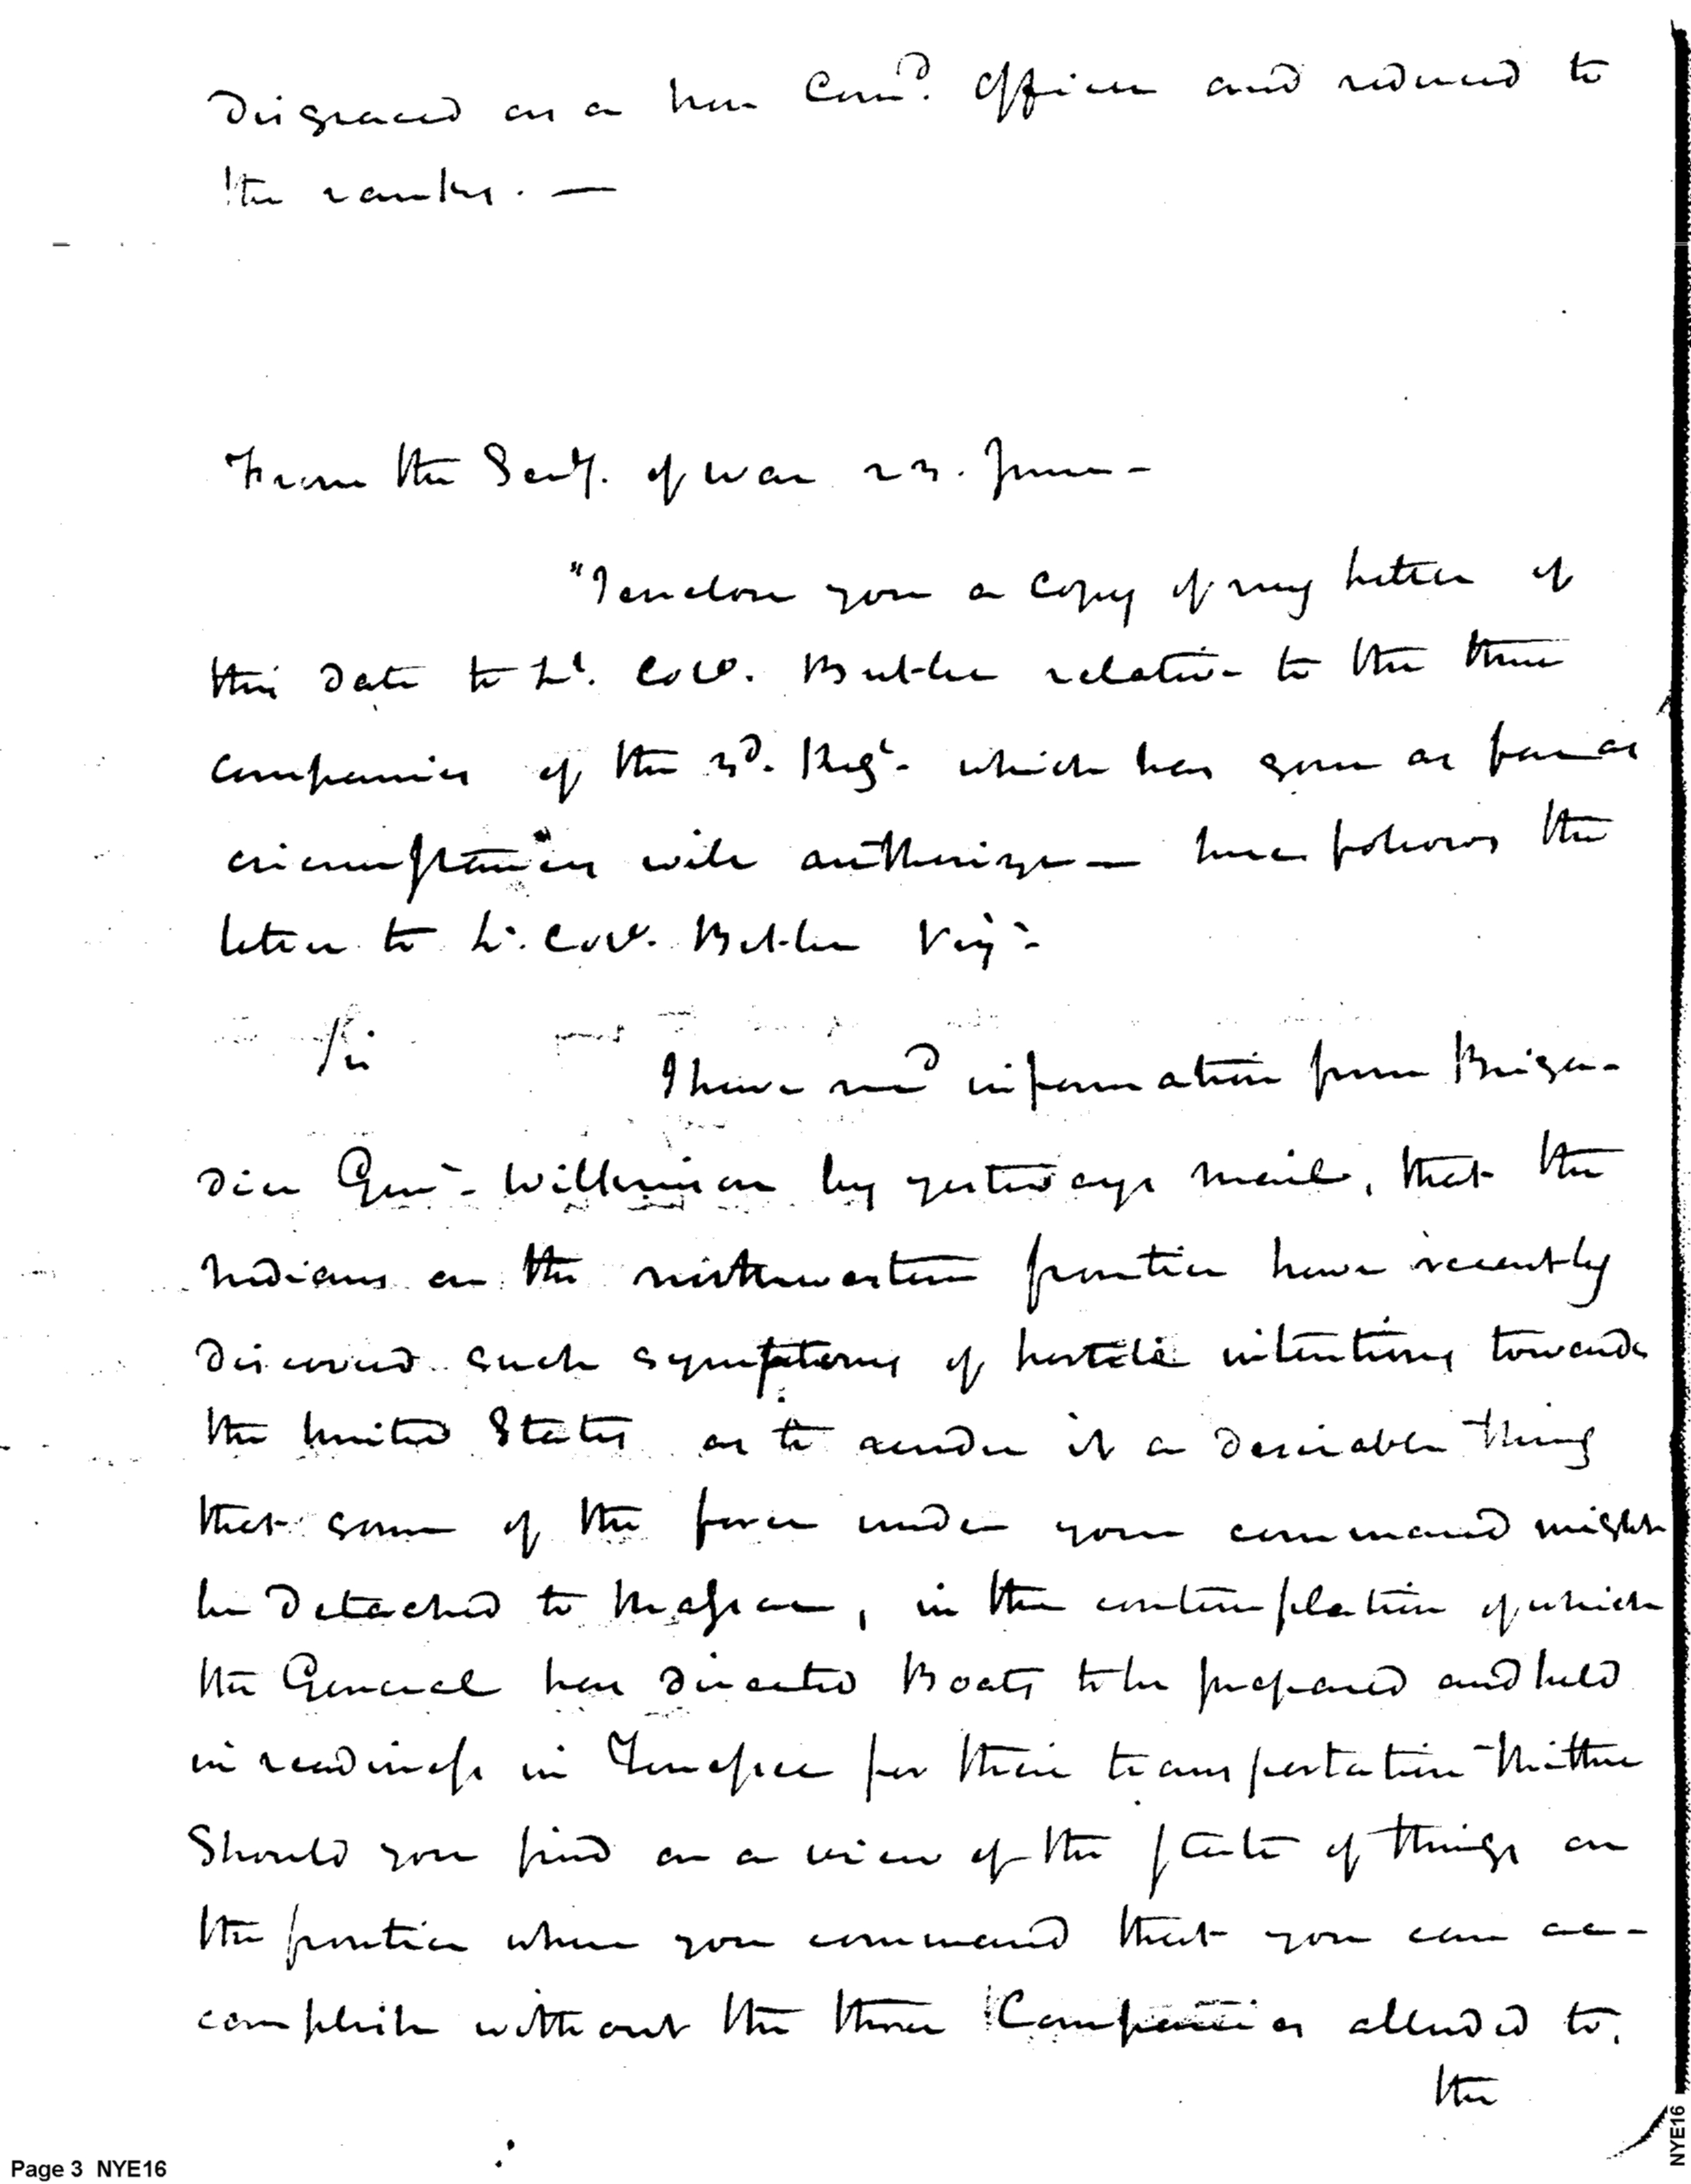 disgraced as a non Com.d officer and reduced to
the ranks. —
From the Secy. of war 23. June -
"I enclose you a copy of my letter of
this date to Lt. Coll. Butler relative to the three
companies of the 3d. Regt. which has gone as far as
circumstances will authorize — here follows the
letter to Lt. Coll. Butler Vizt.
Sir
I have recd information from Briga-
dier Genl. Wilkinson by yesterdays mail, that the
Indians on the northwestern frontier have recently
discovered such symptoms of hostile intentions towards
the United States as to render it a desirable thing
that some of the force under your command might
be detached to Massac, in the contemplation of which
the General has directed Boats to be prepared and held
in readiness in Tenessee for their transportation thither
Should you find on a view of the state of things on
the frontier where you command that you can ac-
complish without the three Companies alluded to,
the
Page 3 NYE16
NYE16